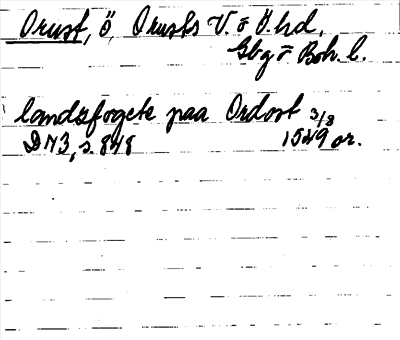 Orust, ö, Orusts V. o Ö. hd,
Gbg o Boh. l.
landzfogete paa Ordost 3/8
DN 3, s. 848 1529 or.